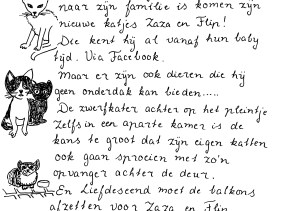 naar zijn familie is komen zijn
nieuwe katjes Zaza en Flip!
Die kent hij al vanaf hun baby
tijd. Via Facebook.
Maar er zijn ook dieren die hij
geen onderdak kan bieden.....
De zwerfkater achter op het pleintje
Zelfs in een aparte kamer is de
kans te groot dat zijn eigen katten
ook gaan sproeien met zo'n
opvanger achter de deur.
En Liefdeseend moet de balkons
afzetten voor Zaza en Flip